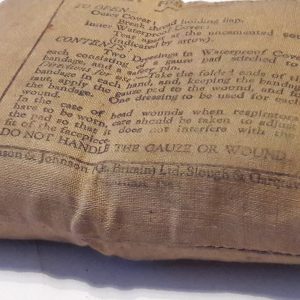 FI
TO OPEN—
Outer Cover:
Break thread holding flap.
Inner Waterproof Cover:
Tear apart at the uncemented
(indicated by arrow).
CONTENTS—
Two Dressings in Waterproof Cove
each consisting of a gauze pad stitched to
bandage, and a safety pin.
Take the folded ends of t
bandage in each hand, and, keeping the bandag
taut apply the gauze pad to the wound, and fix
One dressing to be used for each
In the case of head wounds when respirators
have to be worn care should be taken to adjust
the pad so that it does not interfere with
fit of the facepiece
DO NOT HANDLE THE GAUZE OR WOUND
nson & Johnson (Gt. Britain) Ltd., Slough & Gargrav